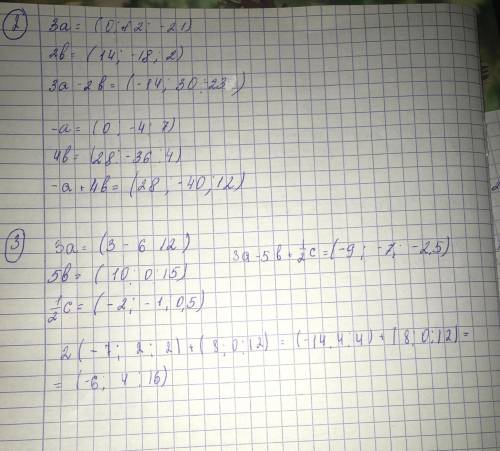 2 3a = (0; 12; -21)
2b = (14; -18; 2)
3a - 2b = (-14; 30; 23)
-a = (0; -4; 7)
4b = (28; -36; 4)
-a + 4b = (28; -40; 12)
3 3a = (3 - 6 12) 3a - 5b + 1/2c = (-9; -7; -2,5)
5b = (10; 0; 15)
1/2c = (-2; -1, 0,5)
2(-7; 2; 2) + (8; 0; 12) = (-14, 4; 4) + (8; 0; 12) =
= (-6; 4; 16)